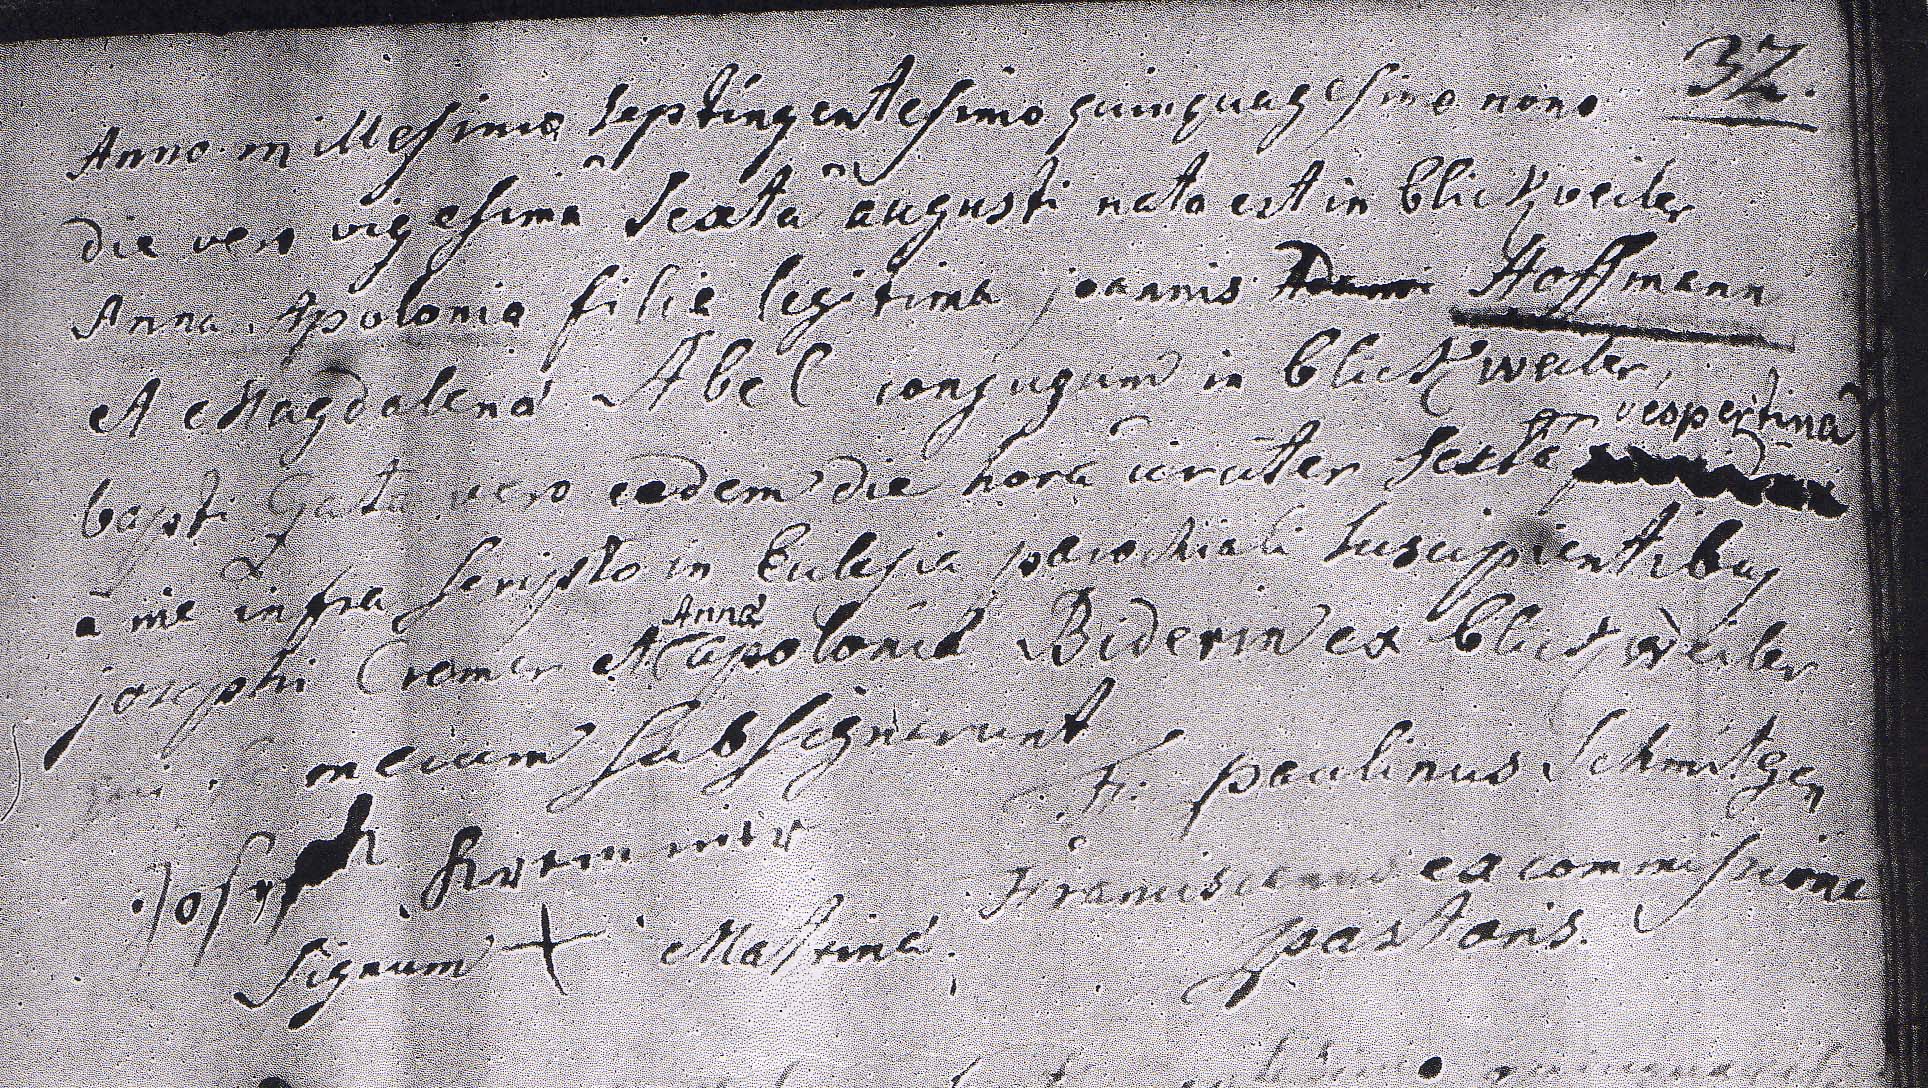 32.
Anno millesimo septingentesimo quinquagesimo nono
die vero vigesimâ sextâ augusti nata est in blickweiler
Anna Apolonia filia legitima joannis Hoffmann
et Magdalenâ Abel conjugum in blickweiler,
baptizata vero eadem die horâ circiter sextâ vespertinâ
à me infra scripto in Ecclesia parochiali suscipientibus
josepho Cremer et Annâ apoloniâ Biderin ex blickweiler
qui mecum subsignarunt
F. paulinus Schmitgen
Joseph
Franciscanus ex commissione
Signum + Matrinae
pastoris.